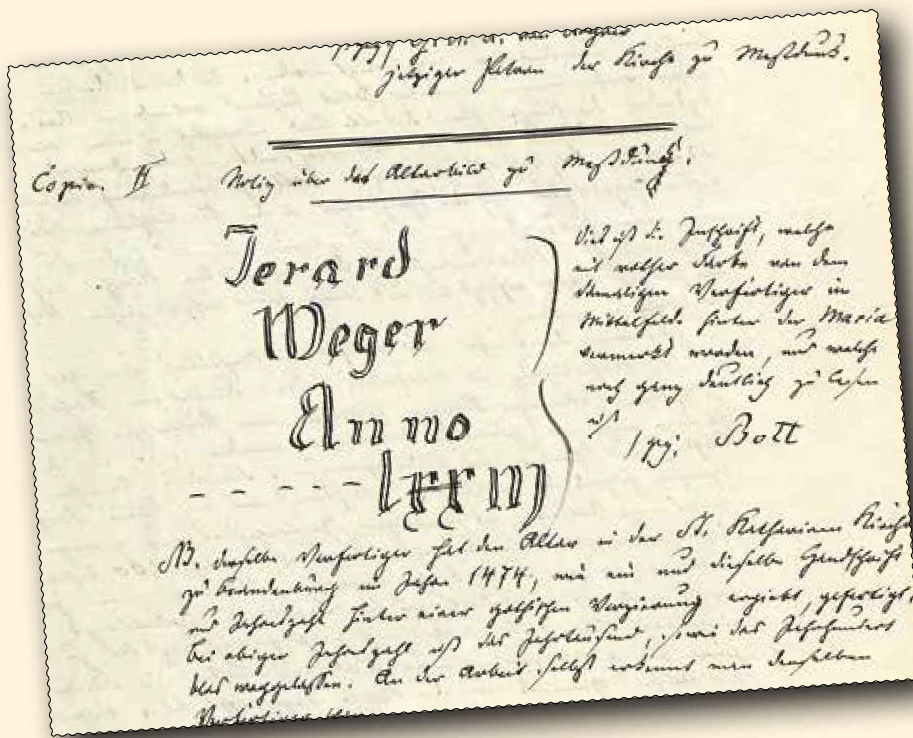 jetziger Patron der Kirche zu Meßdunk.
Copia. II Notiz über das Altarbild zu Meßdunk.
Jerard
Weger
Anno
Dies ist die Inschrift, welche
mit rother Farbe von dem
damaligen Verfertiger im
Mittelfelde hinter der Maria
vermerkt worden, und welche
noch ganz deutlich zu lesen
ist
gez: Bott
NB. derselbe Verfertiger hat den Altar in der St. Katharinen Kirche
zu Brandenburg im Jahre 1474, wie ein und dieselbe Handschrift
und Jahreszahl hinter einer gothischen Verzierung ergiebt, gefertigt,
bei obiger Jahreszahl ist das Jahrtausend, sowie das Jahrhundert
blos weggelassen. An der Arbeit selbst erkennt man denselben
Verfertiger